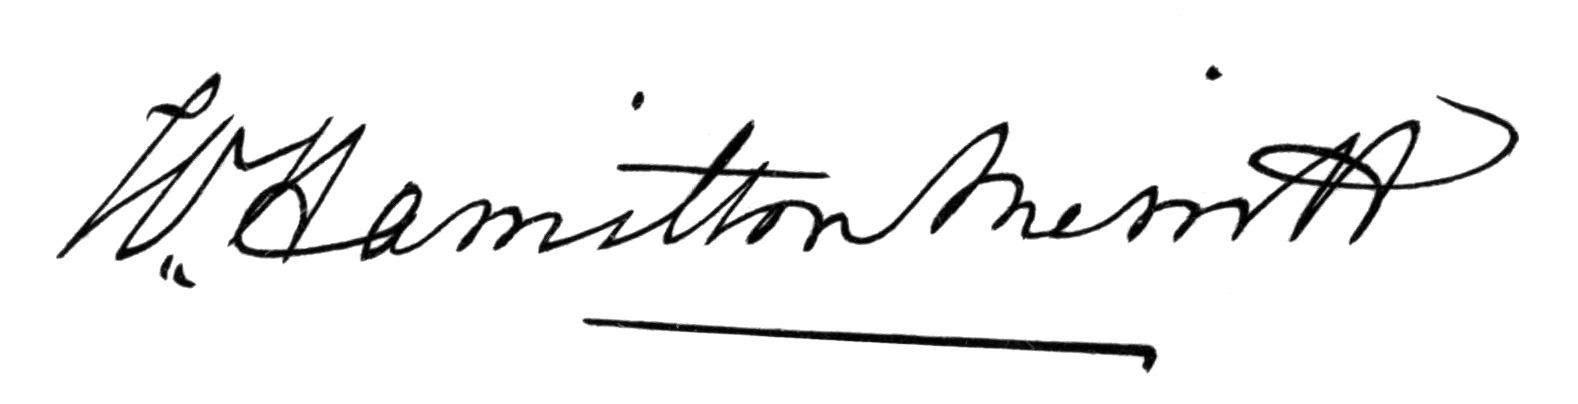 W. Hamilton Merritt